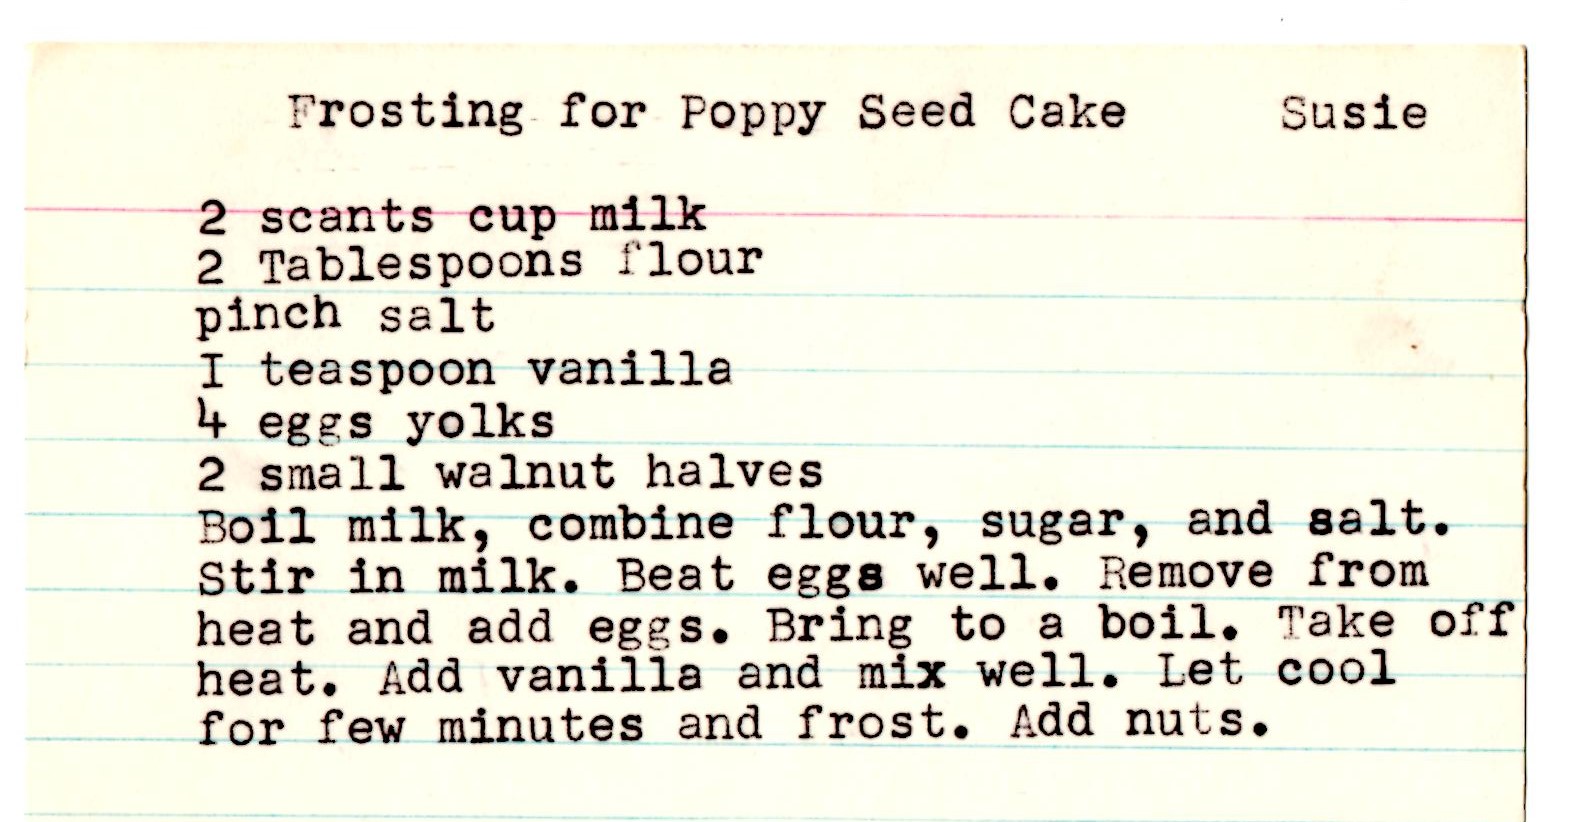 Frosting for Poppy Seed Cake Susie
2 scants cup milk
2 Tablespoons flour
pinch salt
I teaspoon vanilla
4 eggs yolks
2 small walnut halves
Boil milk, combine flour, sugar, and salt.
Stir in milk. Beat eggs well. Remove from
heat and add eggs. Bring to a boil. Take off
heat. Add vanilla and mix well. Let cool
for few minutes and frost. Add nuts.